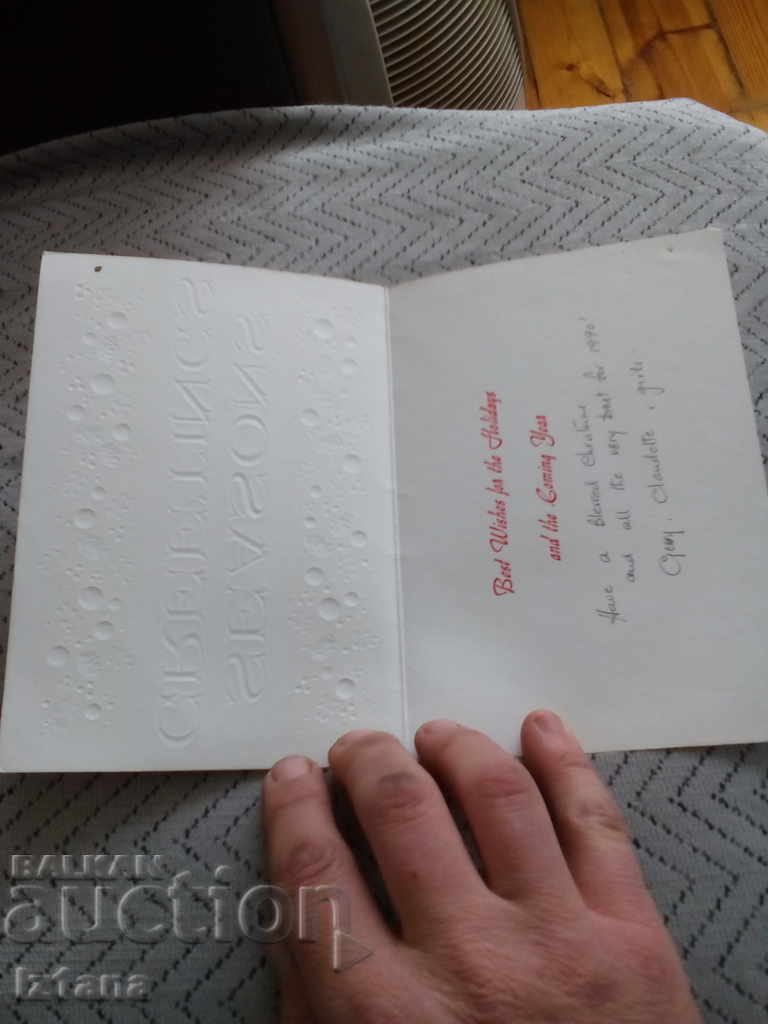 SEASONS
GREETINGS
Best Wishes for the Holidays
and the Coming Year
Have a Blessed Christmas
and all the very best for 1990!
Claudette &
BALKAN
auction
Iztana